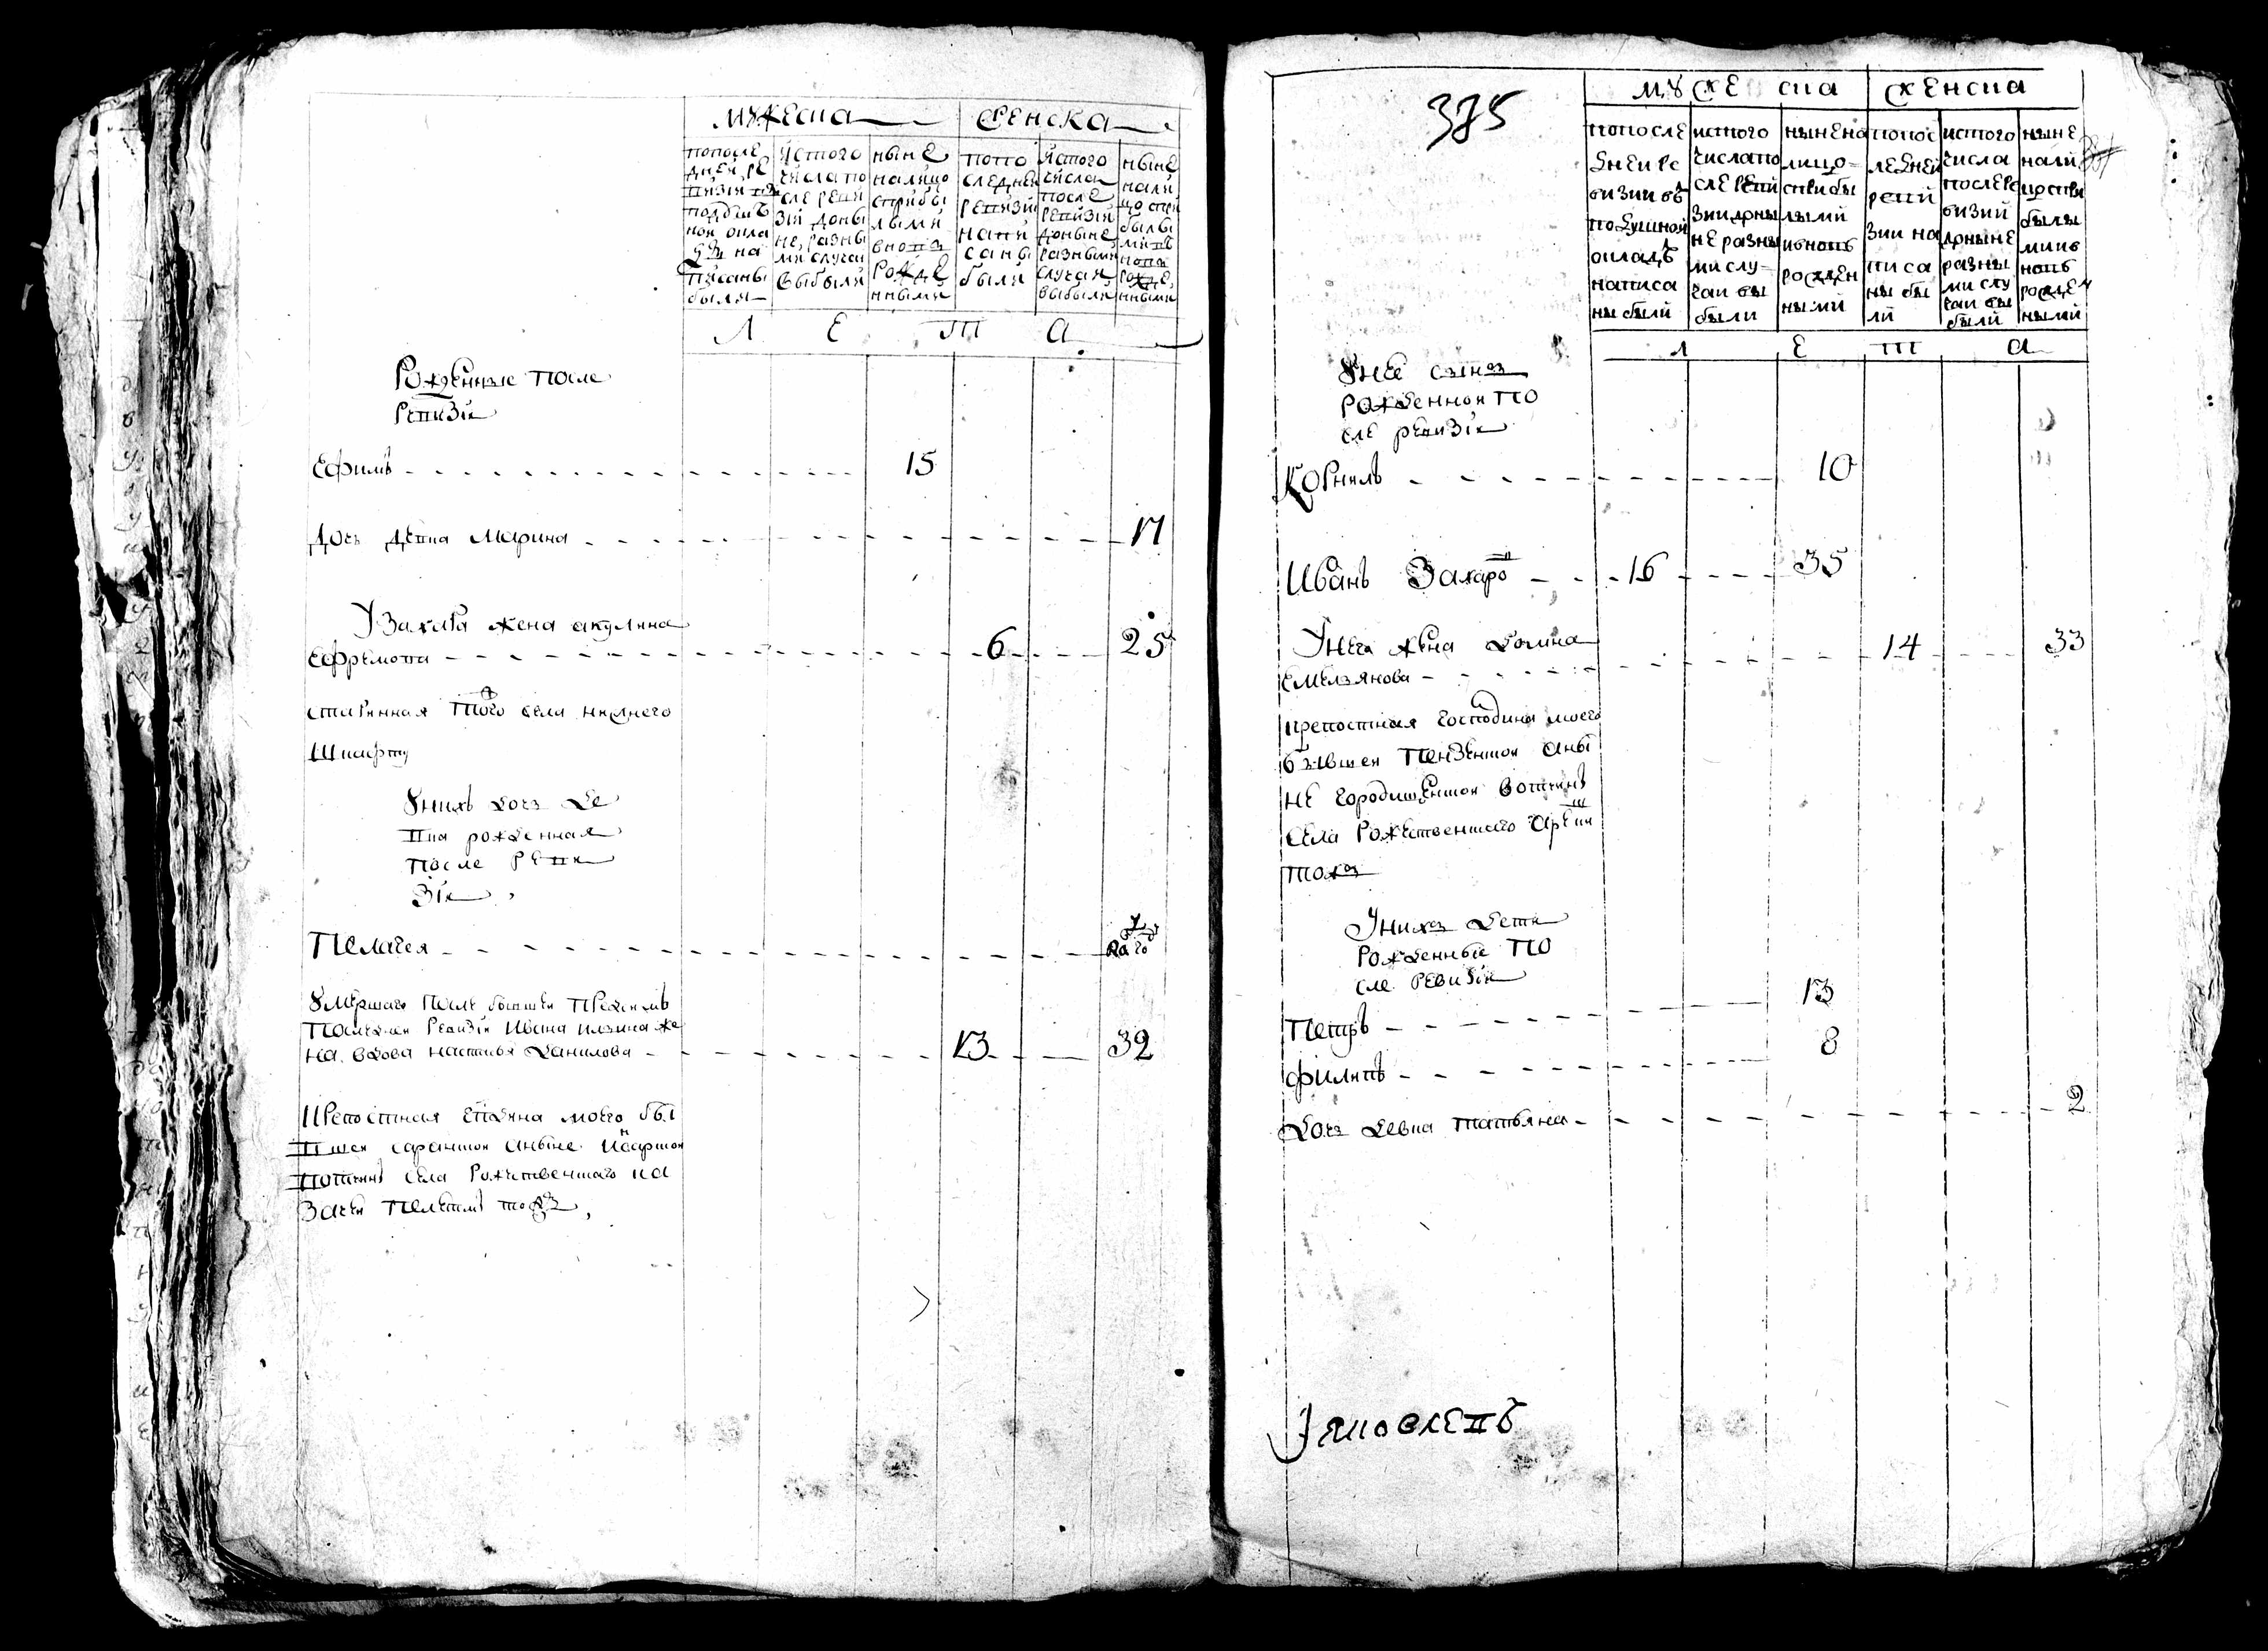 мужеска
женска
попоследней ревизии в подушной оклад написаны были
и с того числа после ревизии до ныне разными случаи выбыли
ныне налицо с прибылыми вновь рожденными
по последней ревизии написаны были
и с того числа после ревизии до ныне разными случаи выбыли
ныне налицо с прибылыми и вновь рожденными
Л Е Т А
Рожденные после
ревизiи
Ефимъ 15
дочь девка Марина 17
У Захара жена акулина
Ефремова 6 25
старинная того села нижнего
Шкафту
У нихъ дочь де
вка рожденная
после реви
зiи
Пелагея
Умершаго после бывшей пред симъ
последней ревизiи Ивана жена
на вдова настасья данилова 13 32
Крепостная гсподина моего бы
вшей саранской аныне Инсарской
вотчины села Рожественскаго ка
зачей пелетмы тожъ
385
мужеска
женска
по последней ревизии въ подушной окладъ написаны были
ис того числа по сле ревизии доныне разными случаи выбыли
ныне на лицо с прибылыми и вновь рожденными
по последней ревизии написаны были
ис того числа после ревизий доныне разными случаи выбыли
ныне налицо с прибылыми и вновь рожденными
Л Е Т А
У нее сынъ
рожденной по
сле ревизiи
Корнилъ 10
Иванъ Захаровъ 16 35
У него жена домна
Емельянова 14 33
крепостная господина моего
бывшей Пензенской аны
не городищенской вотчины
села Рожественскаго
тожъ
У нихъ дети
рожденные по
сле ревизiи
Петръ 13
филипъ 8
дочь девка татьяна 2
Яковлевъ